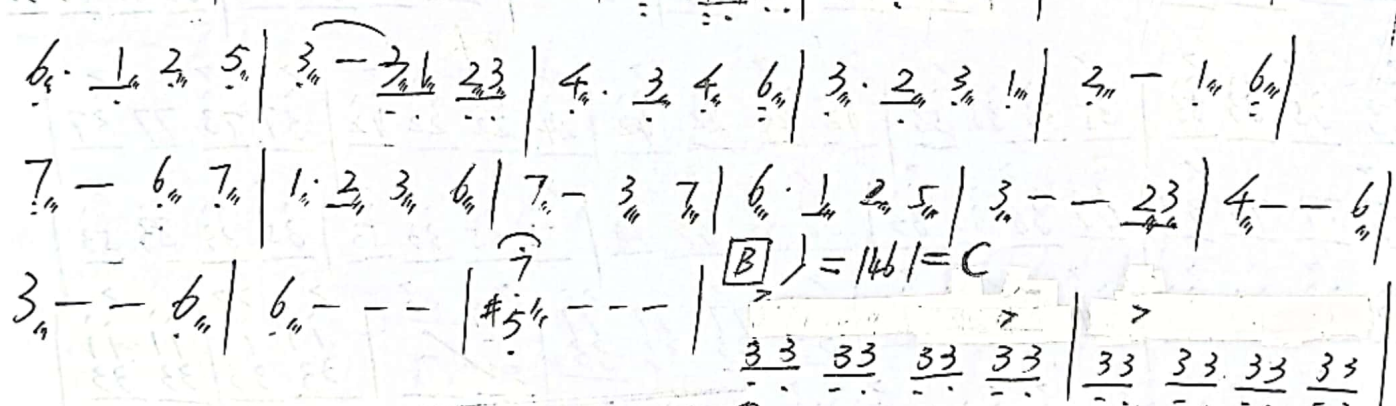 6· 1 2 5 | 3 - 21 23 | 4· 3 4 6 | 3· 2 3 1 | 2 - 1 6 |
7 - 6 7 | 1· 2 3 6 | 7 - 3 7 | 6· 1 2 5 | 3 - - 23 | 4 - - 6 |
3 - - 6 | 6 - - - | #5 - - - |
7
B ♩=146 1=C
> > >
33 33 33 33 | 33 33 33 33 |